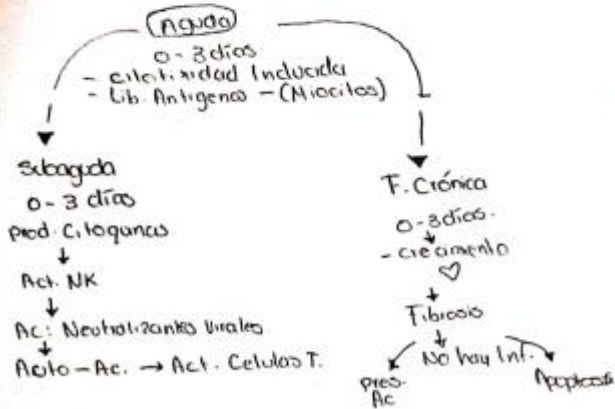 Aguda
0 - 3 días
- Citotoxidad Inducida
- Lib. Antigenos - (Miocitos)
Subaguda
0 - 3 días
prod. Citoquinas
↓
Act. NK
↓
Ac: Neutralizantes Virales
↓
Auto - Ac. → Act. Celulas T.
F. Crónica
0 - 3 días.
↓
- crecimiento
♡
↓
Fibrosis
↓
No hay Inf.
pres.
Ac
Apoptosis